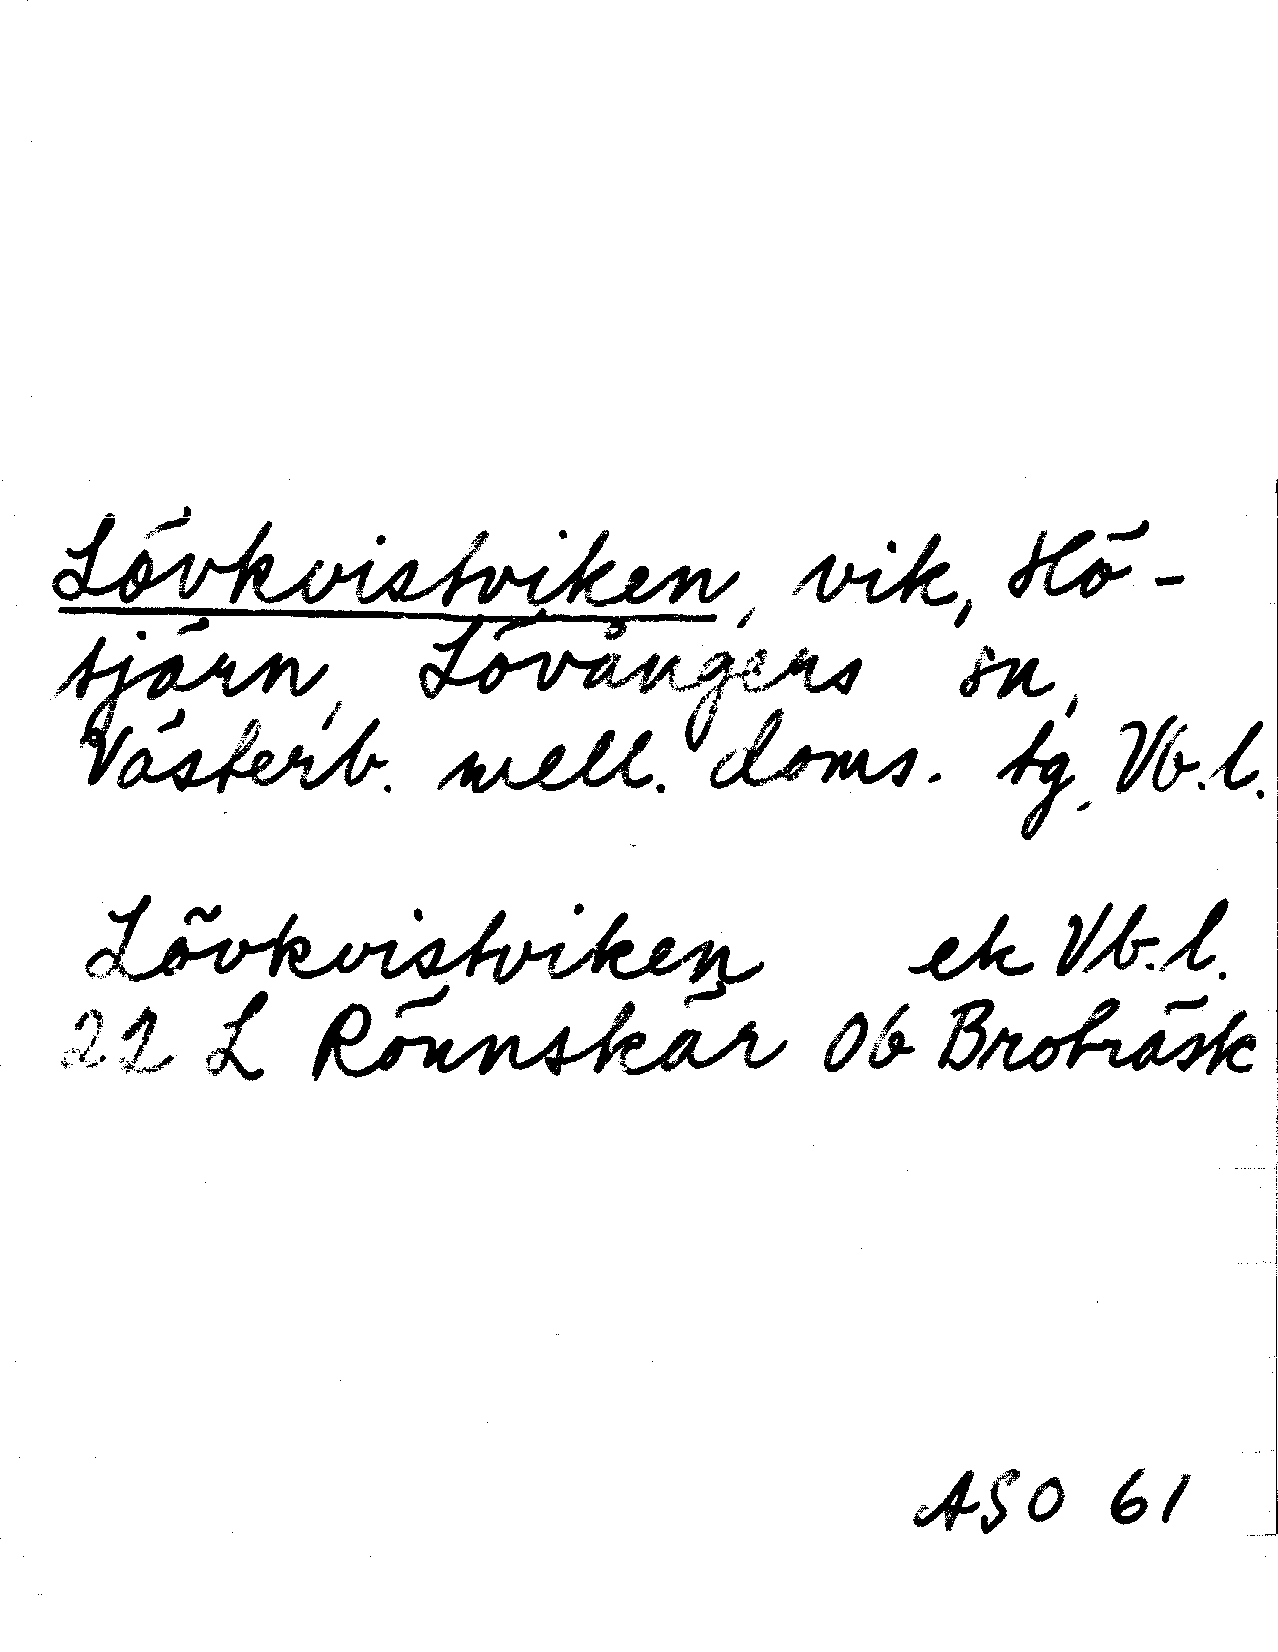 Lövkvistviken, vik, Hö-
tjärn, Lövångers sn,
Västerb. mell. doms. tg, Vb.l.
Lövkvistviken ek Vb.l.
22 L Rönnskär 0b Broträsk
ASO 61